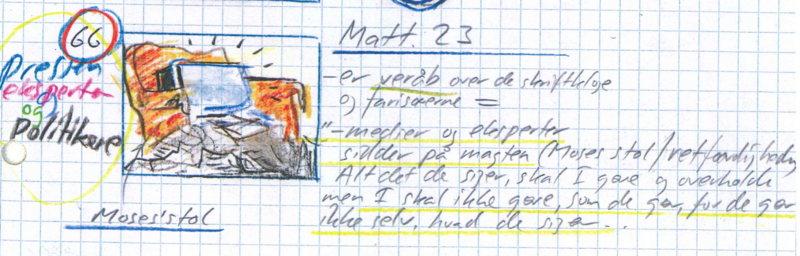 66
Matt. 23
Pressen
eksperter
og
Politikere
- er veråb over de skriftkloge
og farisæerne =
"- medier og eksperter
sidder på magten (Moses stol/retfærdigheden
Alt det de siger, skal I gøre og overholde
men I skal ikke gøre, som de gør, for de gør
ikke selv, hvad de siger..
Moses'stol